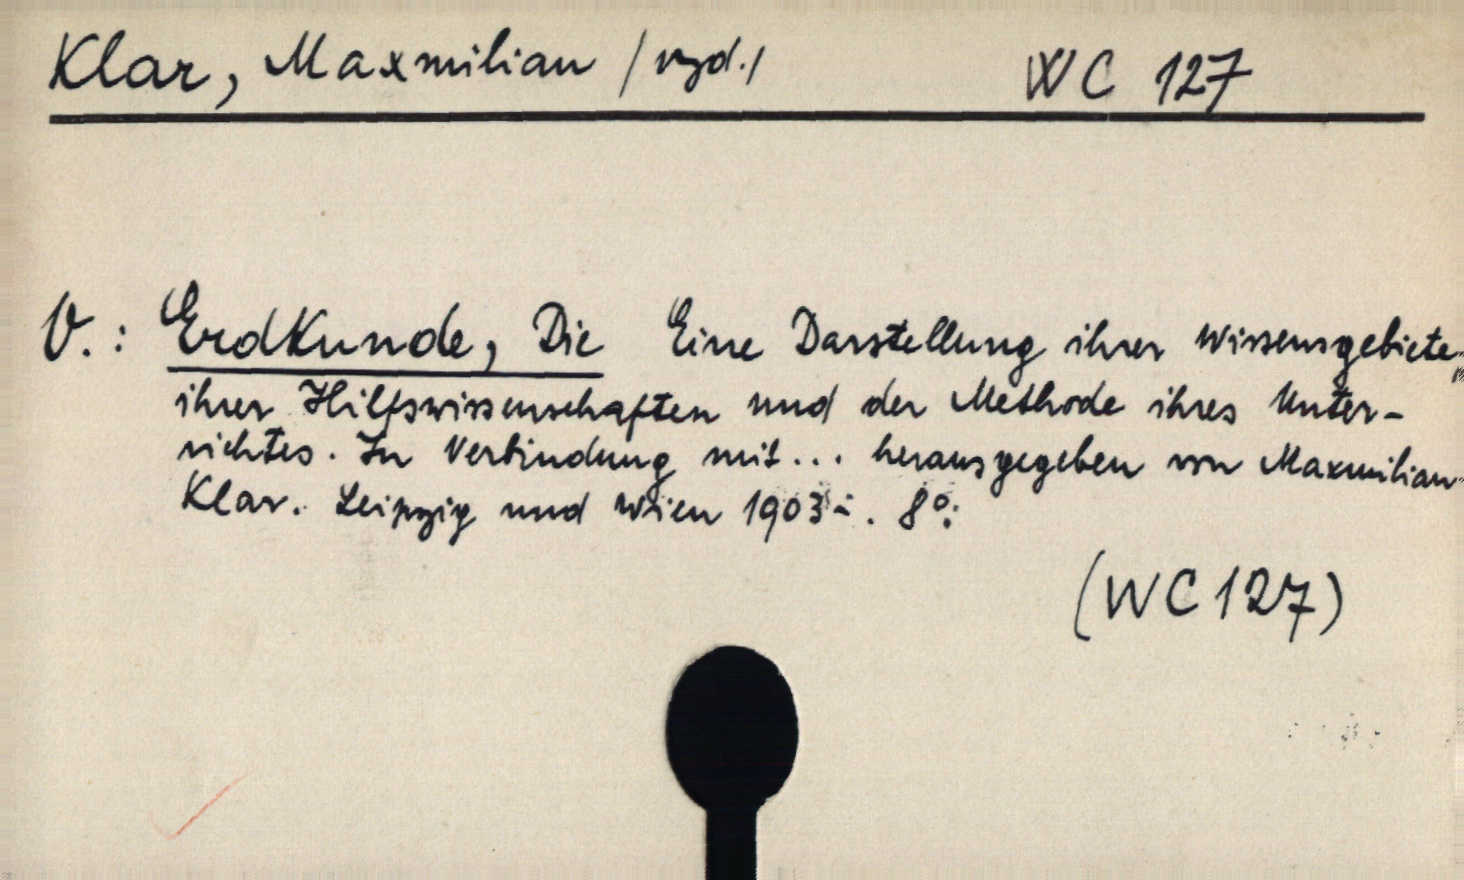 Klar, Maxmilian /vyd./ WC 127
V.: Erdkunde, Die Eine Darstellung ihrer Wissensgebiete,
ihrer Hilfswissenschaften und der Methode ihres Unter-
richtes. In Verbindung mit... herausgegeben von Maxmilian
Klar. Leipzig und Wien 1903-. 8°.
(WC 127)